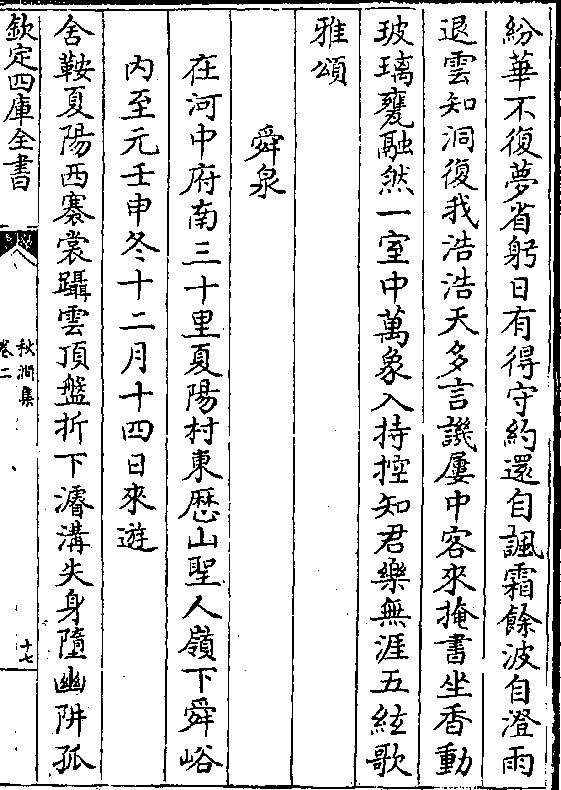 紛華不復夢省躬日有得守約還自諷霜餘波自澄雨
退雲知洞復我浩浩天多言譏屢中客來掩書坐香動
玻璃甕融然一室中萬象入持控知君樂無涯五絃歌
雅頌
舜泉
在河中府南三十里夏陽村東歷山聖人嶺下舜峪
内至元壬申冬十二月十四日來遊
舍鞍夏陽西褰裳躡雲頂盤折下濬溝失身墮幽阱孤
欽定四庫全書
秋澗集
卷二
十七